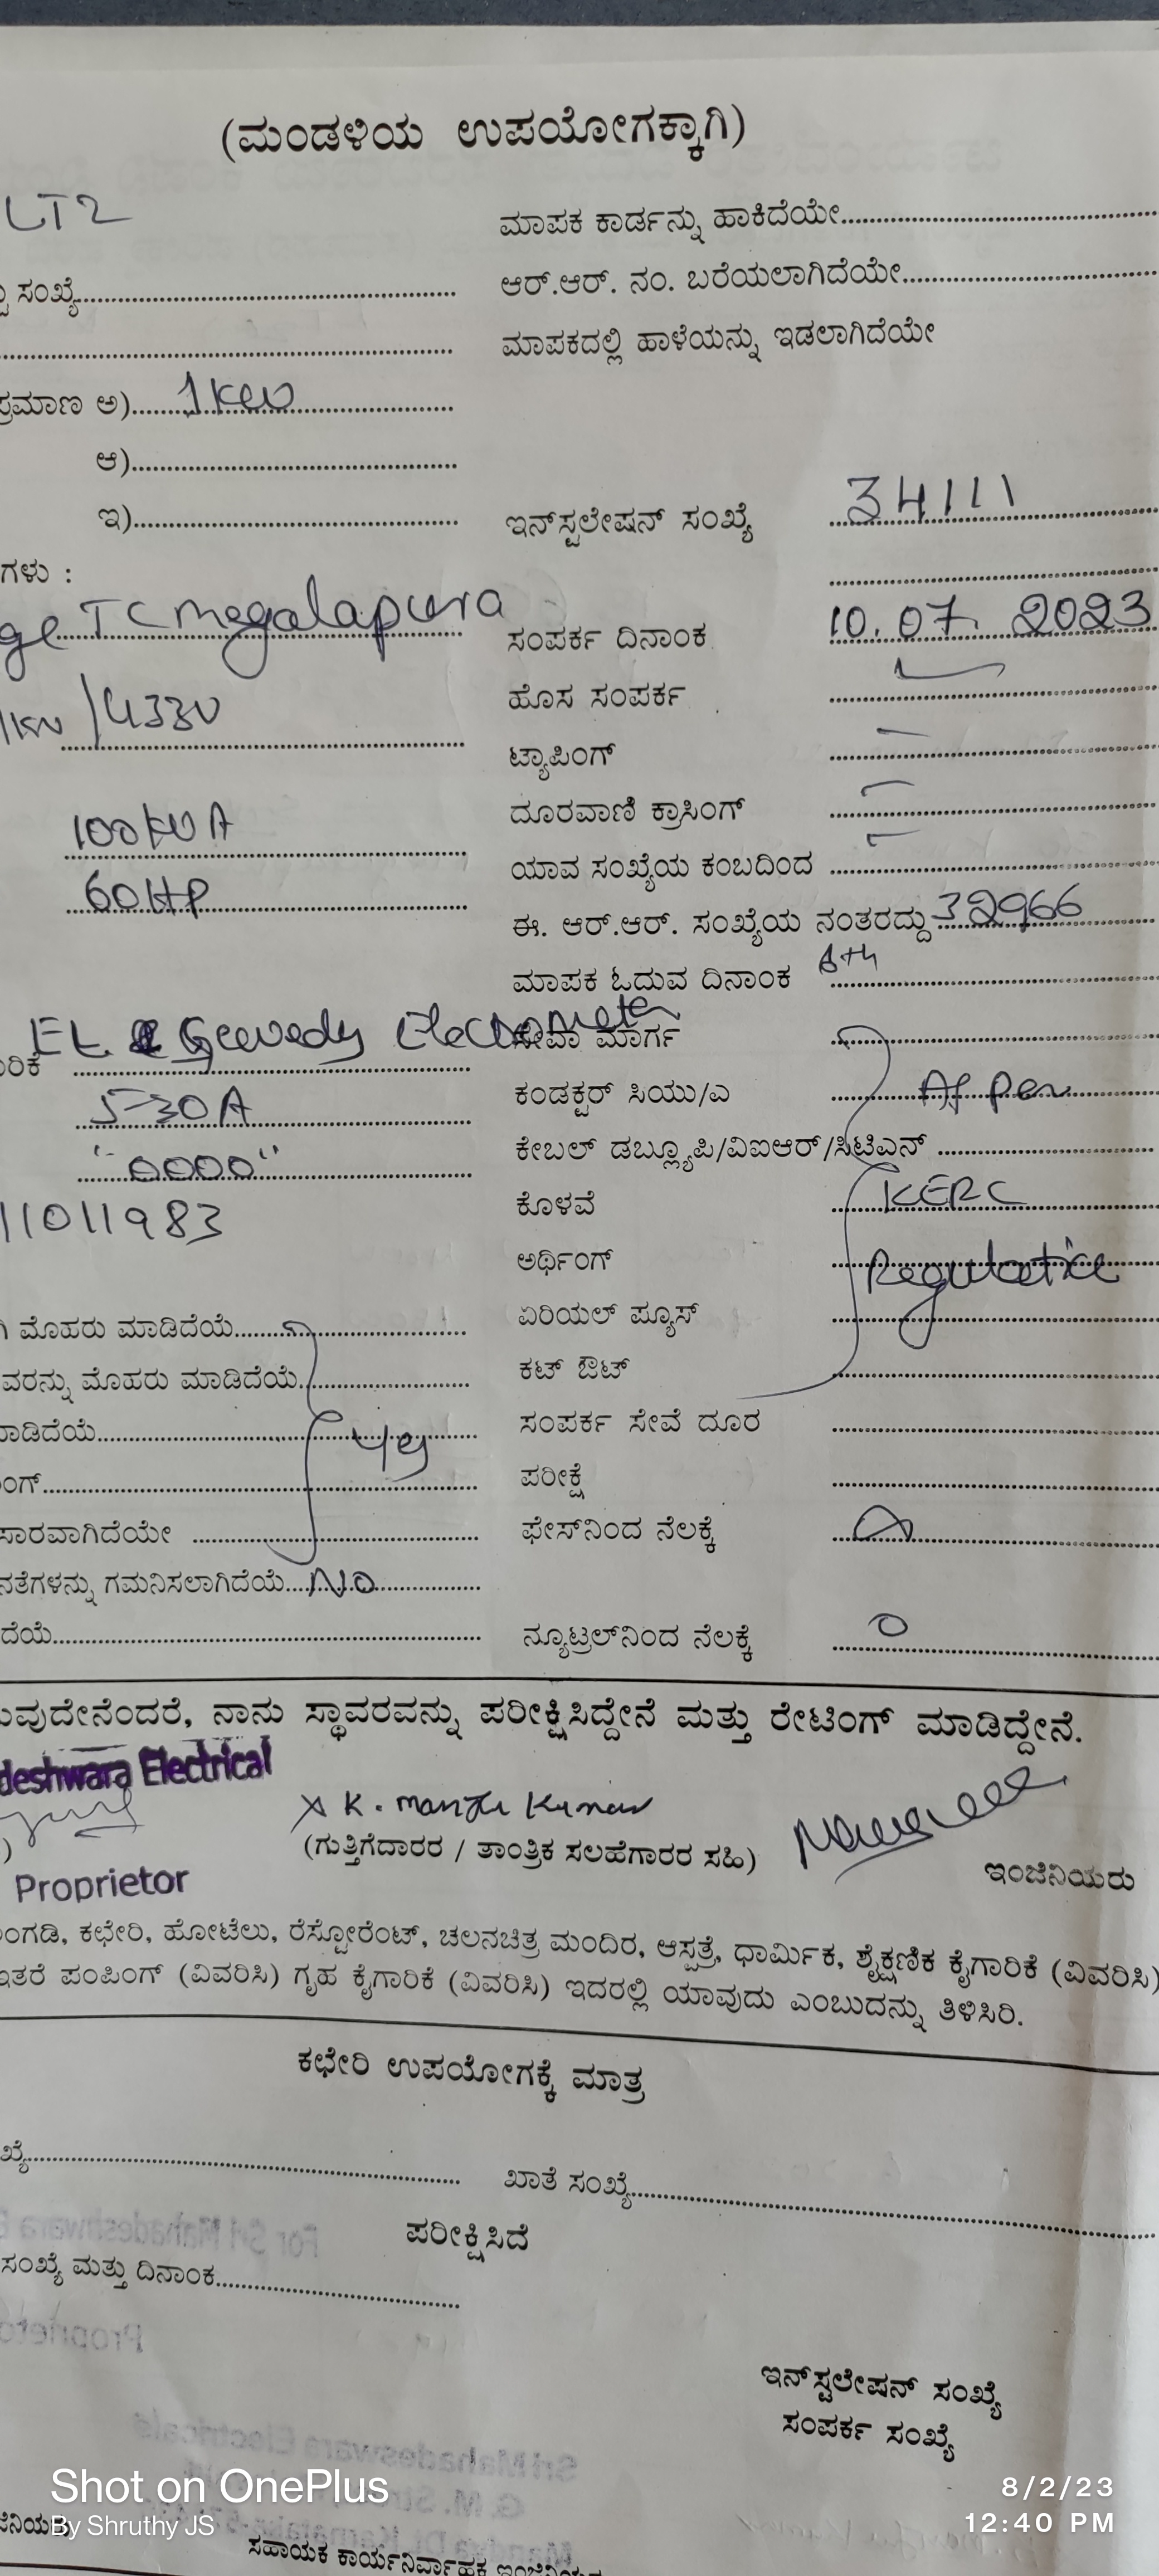 (ಮಂಡಳಿಯ ಉಪಯೋಗಕ್ಕಾಗಿ)
LT2
ಮಾಪಕ ಕಾರ್ಡನ್ನು ಹಾಕಿದೆಯೇ
ಸಂಖ್ಯೆ
ಆರ್.ಆರ್. ನಂ. ಬರೆಯಲಾಗಿದೆಯೇ
ಮಾಪಕದಲ್ಲಿ ಹಾಳೆಯನ್ನು ಇಡಲಾಗಿದೆಯೇ
ಪ್ರಮಾಣ ಅ) 1 KW
ಆ)
ಇ)
ಇನ್‌ಸ್ಟಲೇಷನ್ ಸಂಖ್ಯೆ 34111
ಗಳು :
TC megalapura
ಸಂಪರ್ಕ ದಿನಾಂಕ 10.07.2023
ಹೊಸ ಸಂಪರ್ಕ
/433V
ಟ್ಯಾಪಿಂಗ್
ದೂರವಾಣಿ ಕ್ರಾಸಿಂಗ್
100KVA
ಯಾವ ಸಂಖ್ಯೆಯ ಕಂಬದಿಂದ
60HP
ಈ. ಆರ್.ಆರ್. ಸಂಖ್ಯೆಯ ನಂತರದ್ದು 32966
ಮಾಪಕ ಓದುವ ದಿನಾಂಕ
ಸೇವಾ ಮಾರ್ಗ
5-30A
ಕಂಡಕ್ಟರ್ ಸಿಯು/ಎ As per
"0000"
ಕೇಬಲ್ ಡಬ್ಲ್ಯೂಪಿ/ವಿಐಆರ್/ಸಿಟಿಎನ್
11011983
ಕೊಳವೆ KERC
ಅರ್ಥಿಂಗ್
ಮೊಹರು ಮಾಡಿದೆಯೆ
ಏರಿಯಲ್ ಪ್ಯೂಸ್
ವರನ್ನು ಮೊಹರು ಮಾಡಿದೆಯೆ
ಕಟ್ ಔಟ್
ಮಾಡಿದೆಯೆ
ಸಂಪರ್ಕ ಸೇವೆ ದೂರ
ಂಗ್
ಪರೀಕ್ಷೆ
ಸಾರವಾಗಿದೆಯೇ
ಫೇಸ್‌ನಿಂದ ನೆಲಕ್ಕೆ
ನತೆಗಳನ್ನು ಗಮನಿಸಲಾಗಿದೆಯೆ NO
ದೆಯೆ
ನ್ಯೂಟ್ರಲ್‌ನಿಂದ ನೆಲಕ್ಕೆ 0
ುವುದೇನೆಂದರೆ, ನಾನು ಸ್ಥಾವರವನ್ನು ಪರೀಕ್ಷಿಸಿದ್ದೇನೆ ಮತ್ತು ರೇಟಿಂಗ್ ಮಾಡಿದ್ದೇನೆ.
deshwara Electrical
(ಗುತ್ತಿಗೆದಾರರ / ತಾಂತ್ರಿಕ ಸಲಹೆಗಾರರ ಸಹಿ)
ಇಂಜಿನಿಯರು
Proprietor
ಂಗಡಿ, ಕಛೇರಿ, ಹೋಟೆಲು, ರೆಸ್ಟೋರೆಂಟ್, ಚಲನಚಿತ್ರ ಮಂದಿರ, ಆಸ್ಪತ್ರೆ, ಧಾರ್ಮಿಕ, ಶೈಕ್ಷಣಿಕ ಕೈಗಾರಿಕೆ (ವಿವರಿಸಿ)
ಇತರೆ ಪಂಪಿಂಗ್ (ವಿವರಿಸಿ) ಗೃಹ ಕೈಗಾರಿಕೆ (ವಿವರಿಸಿ) ಇದರಲ್ಲಿ ಯಾವುದು ಎಂಬುದನ್ನು ತಿಳಿಸಿರಿ.
ಕಛೇರಿ ಉಪಯೋಗಕ್ಕೆ ಮಾತ್ರ
ಖ್ಯೆ
ಖಾತೆ ಸಂಖ್ಯೆ
ಪರೀಕ್ಷಿಸಿದೆ
ಸಂಖ್ಯೆ ಮತ್ತು ದಿನಾಂಕ
ಇನ್‌ಸ್ಟಲೇಷನ್ ಸಂಖ್ಯೆ
ಸಂಪರ್ಕ ಸಂಖ್ಯೆ
Shot on OnePlus
By Shruthy JS
8/2/23
12:40 PM
ಸಹಾಯಕ ಕಾರ್ಯನಿರ್ವಾಹಕ